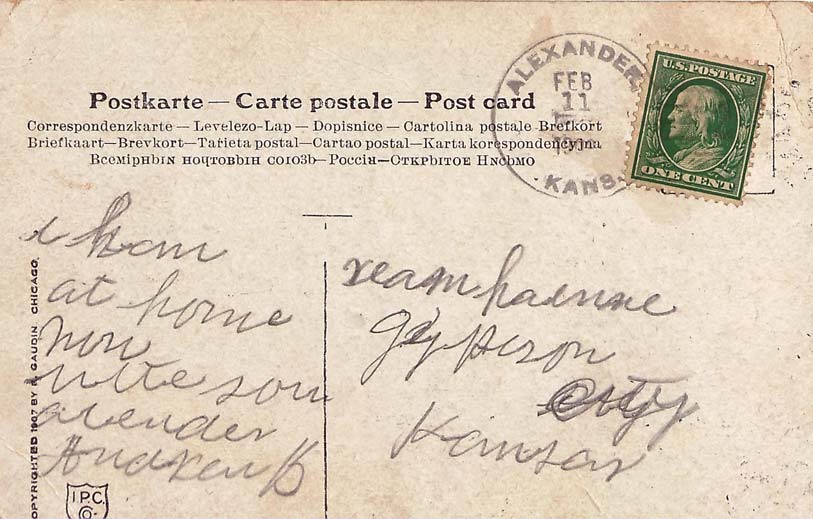 Postkarte — Carte postale — Post card
Correspondenzkarte — Levelezo-Lap — Dopisnice — Cartolina postale Brefkort
Briefkaart — Brevkort — Tarieta postal — Cartao postal — Karta korespondencyjna
ВсемірнЫн ноутовЫн союзЪ — Россіи — ОткрЫтое Нисьмо
ALEXANDER
FEB
11
KANS.
U.S. POSTAGE
ONE CENT
i kom
at home
now
write son
Andrew B
City
Kansas
COPYRIGHTED 1907 BY F. GAUDIN CHICAGO.
I.P.C.
Co.